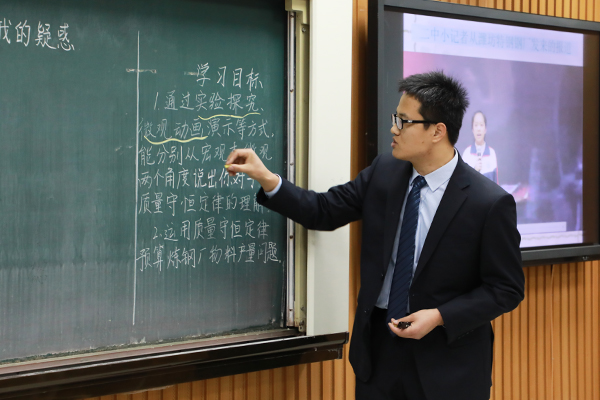 我的疑惑
学习目标
1.通过实验探究、
微观动画演示等方式,
能分别从宏观和微观
两个角度说出你对
质量守恒定律的理解
2.运用质量守恒定律
预算炼钢厂物料产量问题。
二中小记者从